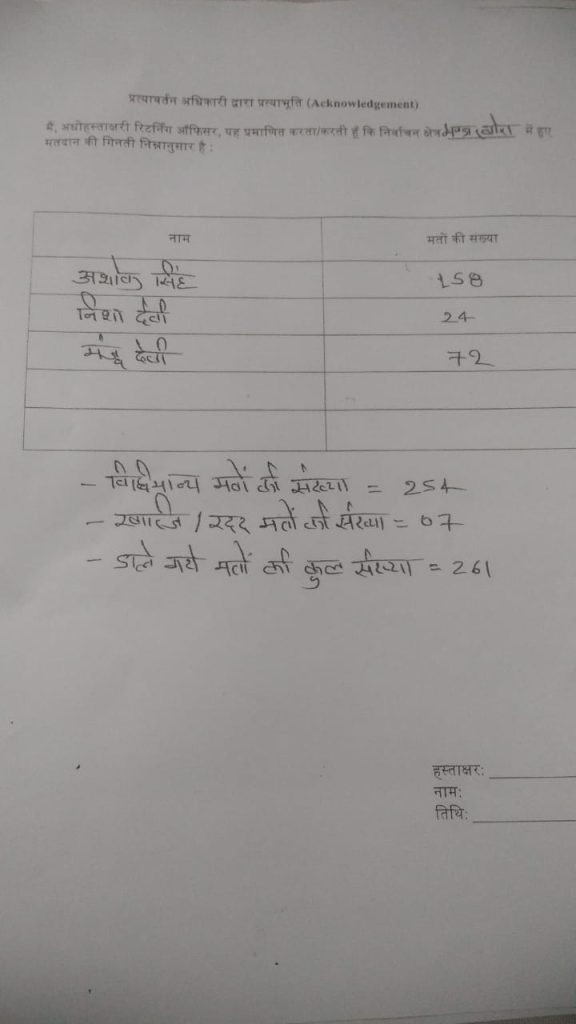 प्रत्यावर्तन अधिकारी द्वारा प्रत्याभूति (Acknowledgement)
मैं, अधोहस्ताक्षरी रिटर्निंग ऑफिसर, यह प्रमाणित करता/करती हूँ कि निर्वाचन क्षेत्र में हुए
मतदान की गिनती निम्नानुसार है :
नाम मतों की संख्या
अशोक सिंह 158
निशा देवी 24
मंजू देवी 72
- विधिमान्य मतों की संख्या = 254
- खारिज / रदद मतों की संख्या = 07
- डाले गये मतों की कुल संख्या = 261
हस्ताक्षर:
नाम:
तिथि: